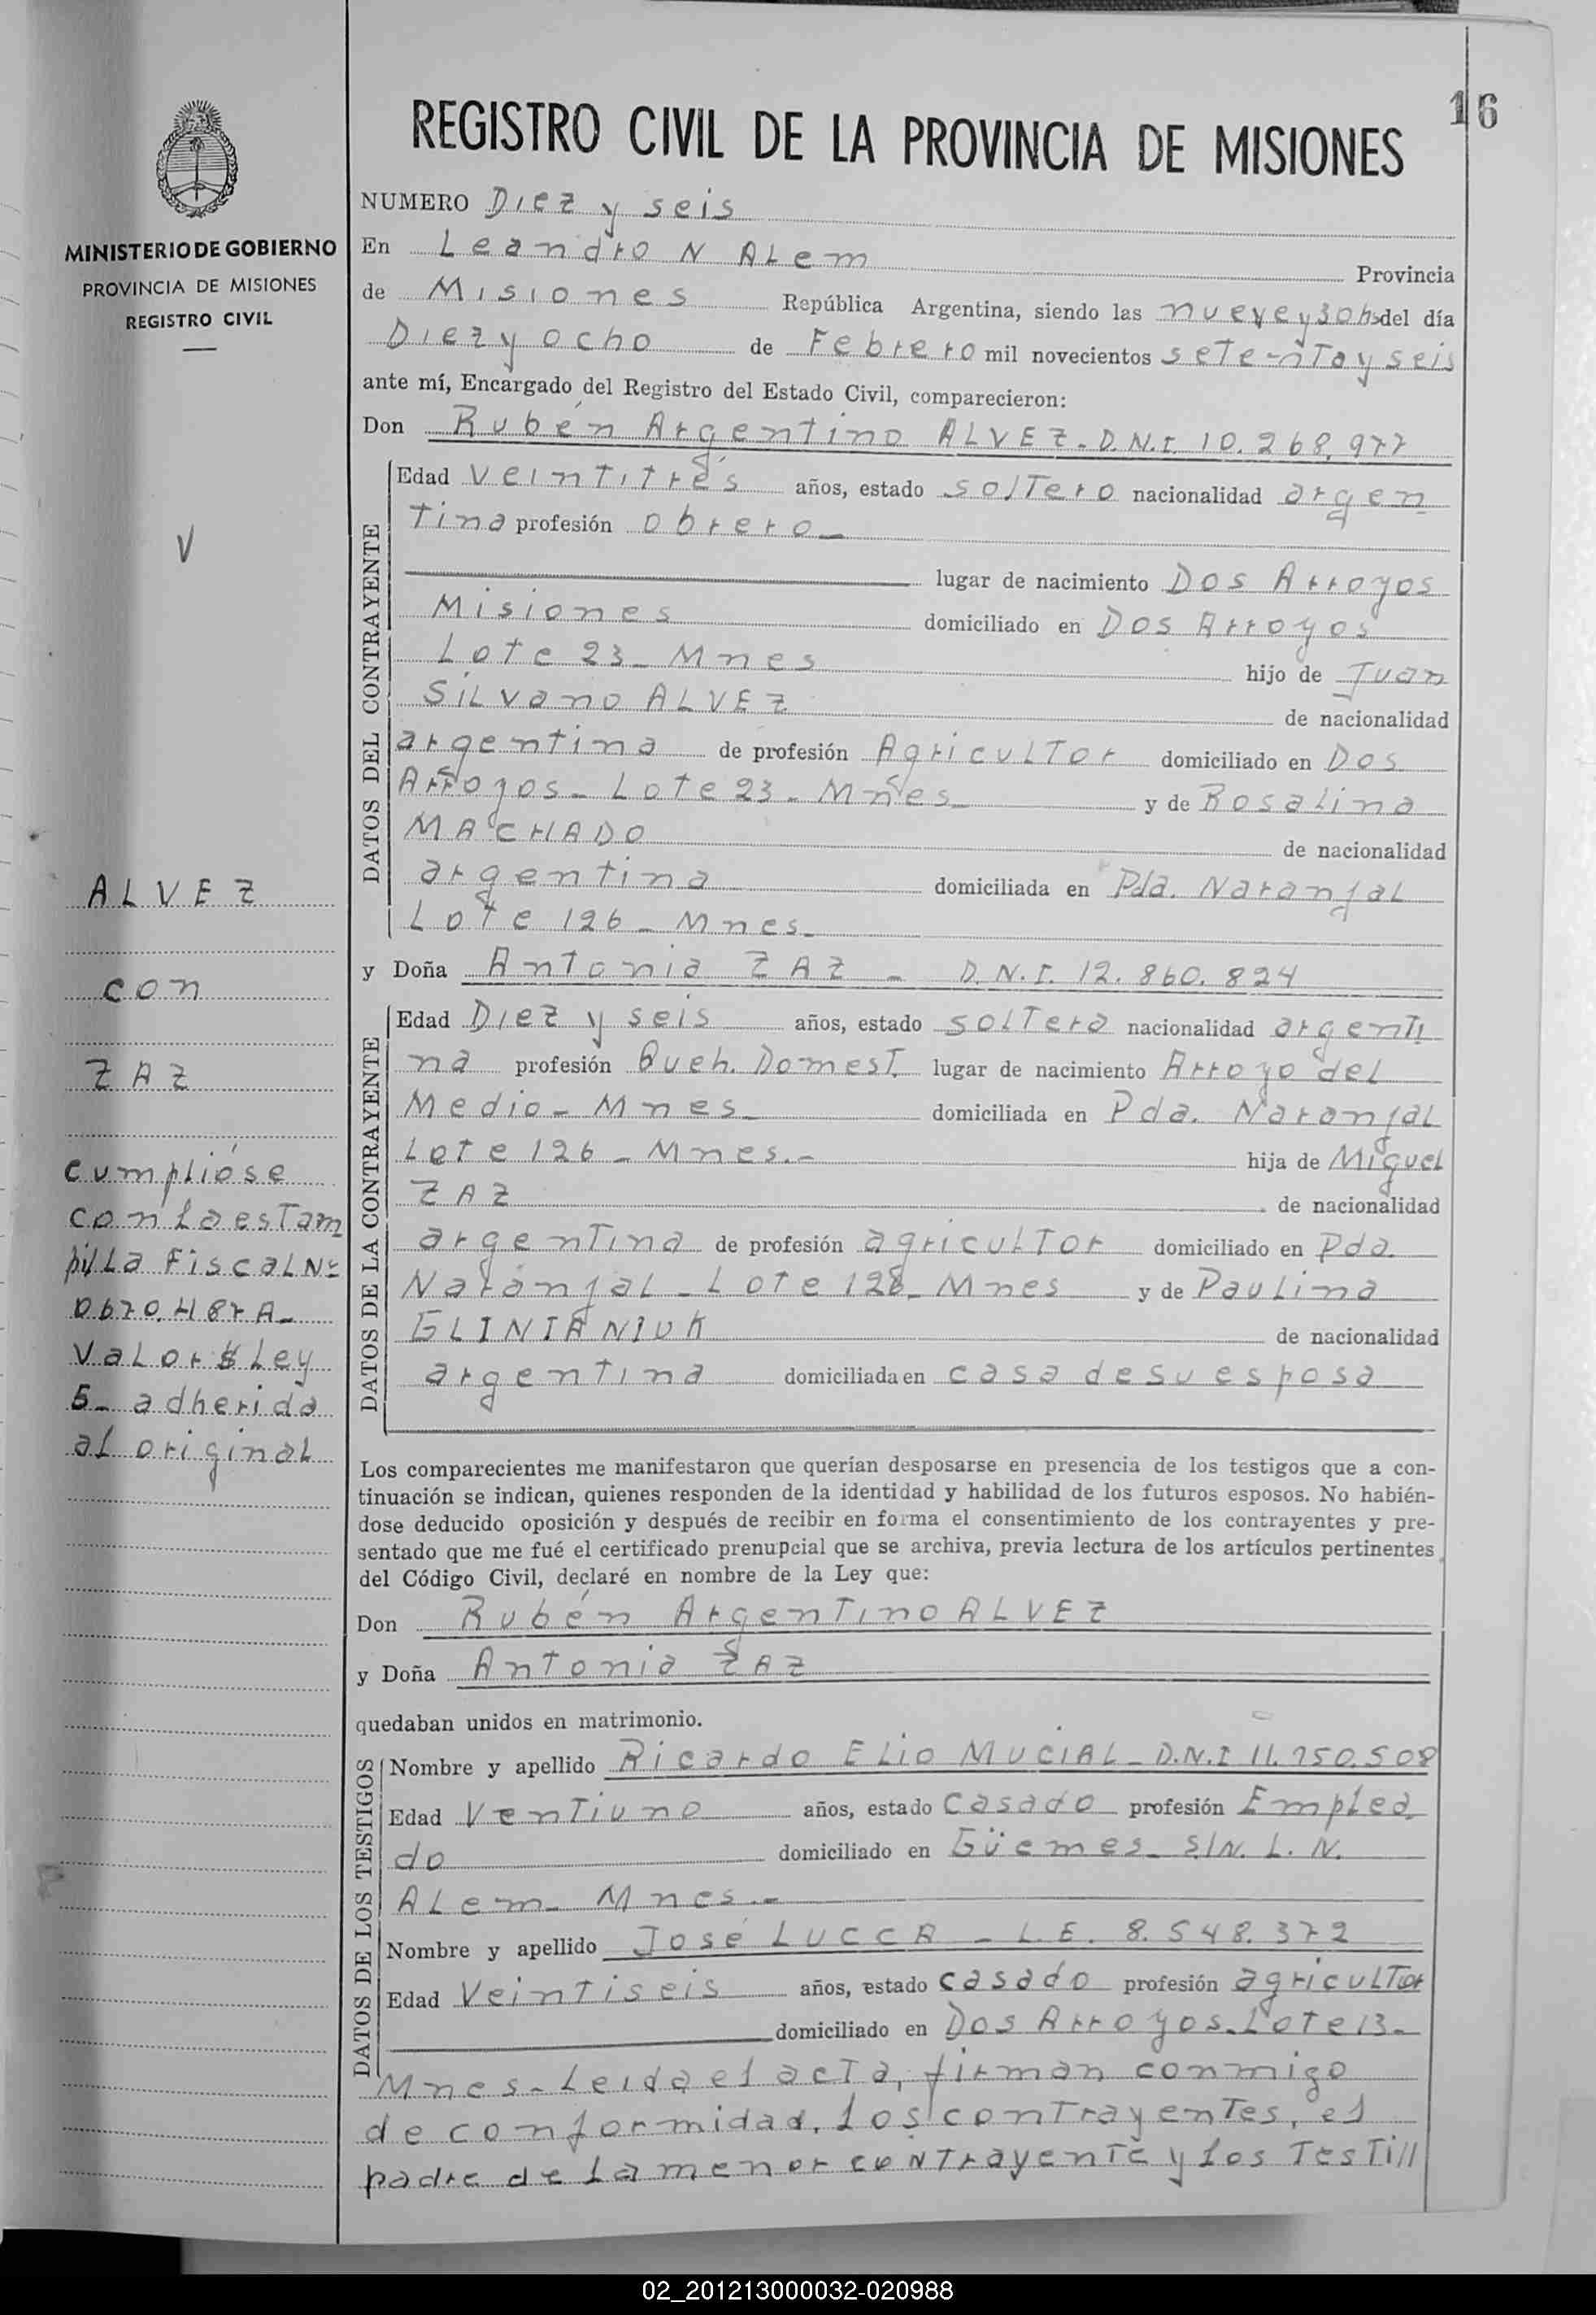 16
REGISTRO CIVIL DE LA PROVINCIA DE MISIONES
MINISTERIO DE GOBIERNO
PROVINCIA DE MISIONES
REGISTRO CIVIL
V
ALVEZ
con
ZAZ
cumplióse
con la estam
pilla Fiscal Nº
0670.487A-
Valor $ Ley
5- adherida
al original
NUMERO Diez y seis
En Leandro N ALem Provincia
de Misiones República Argentina, siendo las nueve y 30 hs del día
Diez y ocho de Febrero mil novecientos setenta y seis
ante mí, Encargado del Registro del Estado Civil, comparecieron:
Don Rubén Argentino ALVEZ- D.N.I. 10.268.977
DATOS DEL CONTRAYENTE
Edad veintitrés años, estado soltero nacionalidad argen
tina profesión obrero-
lugar de nacimiento Dos Arroyos
Misiones domiciliado en Dos Arroyos
Lote 23- Mnes hijo de Juan
Silvano ALVEZ de nacionalidad
argentina de profesión Agricultor domiciliado en Dos
Arroyos- Lote 23- Mnes- y de Rosalina
MACHADO de nacionalidad
argentina domiciliada en Pda. Naranjal
Lote 126- Mnes-
y Doña Antonia ZAZ - D.N.I. 12.860.824
DATOS DE LA CONTRAYENTE
Edad Diez y seis años, estado soltera nacionalidad argenti
na profesión Queh. Domest. lugar de nacimiento Arroyo del
Medio- Mnes- domiciliada en Pda. Naranjal
Lote 126- Mnes.- hija de Miguel
ZAZ de nacionalidad
argentina de profesión agricultor domiciliado en Pda.
Naranjal- Lote 126- Mnes y de Paulina
GLINIANIUK de nacionalidad
argentina domiciliada en casa de su esposa
Los comparecientes me manifestaron que querían desposarse en presencia de los testigos que a con-
tinuación se indican, quienes responden de la identidad y habilidad de los futuros esposos. No habién-
dose deducido oposición y después de recibir en forma el consentimiento de los contrayentes y pre-
sentado que me fué el certificado prenupcial que se archiva, previa lectura de los artículos pertinentes
del Código Civil, declaré en nombre de la Ley que:
Don Rubén Argentino ALVEZ
y Doña Antonia ZAZ
quedaban unidos en matrimonio.
DATOS DE LOS TESTIGOS
Nombre y apellido Ricardo Elio MUCIAL- D.N.I 11.750.508
Edad Ventiuno años, estado casado profesión Emplea
do domiciliado en Güemes- S/N. L. N.
ALem- Mnes.-
Nombre y apellido José LUCCA - L.E. 8.548.372
Edad Veintiseis años, estado casado profesión agricultor
domiciliado en Dos Arroyos- Lote 13-
Mnes- Leida el acta, firman conmigo
de conformidad, los contrayentes, el
padre de la menor contrayente y los testi//
02_201213000032-020988